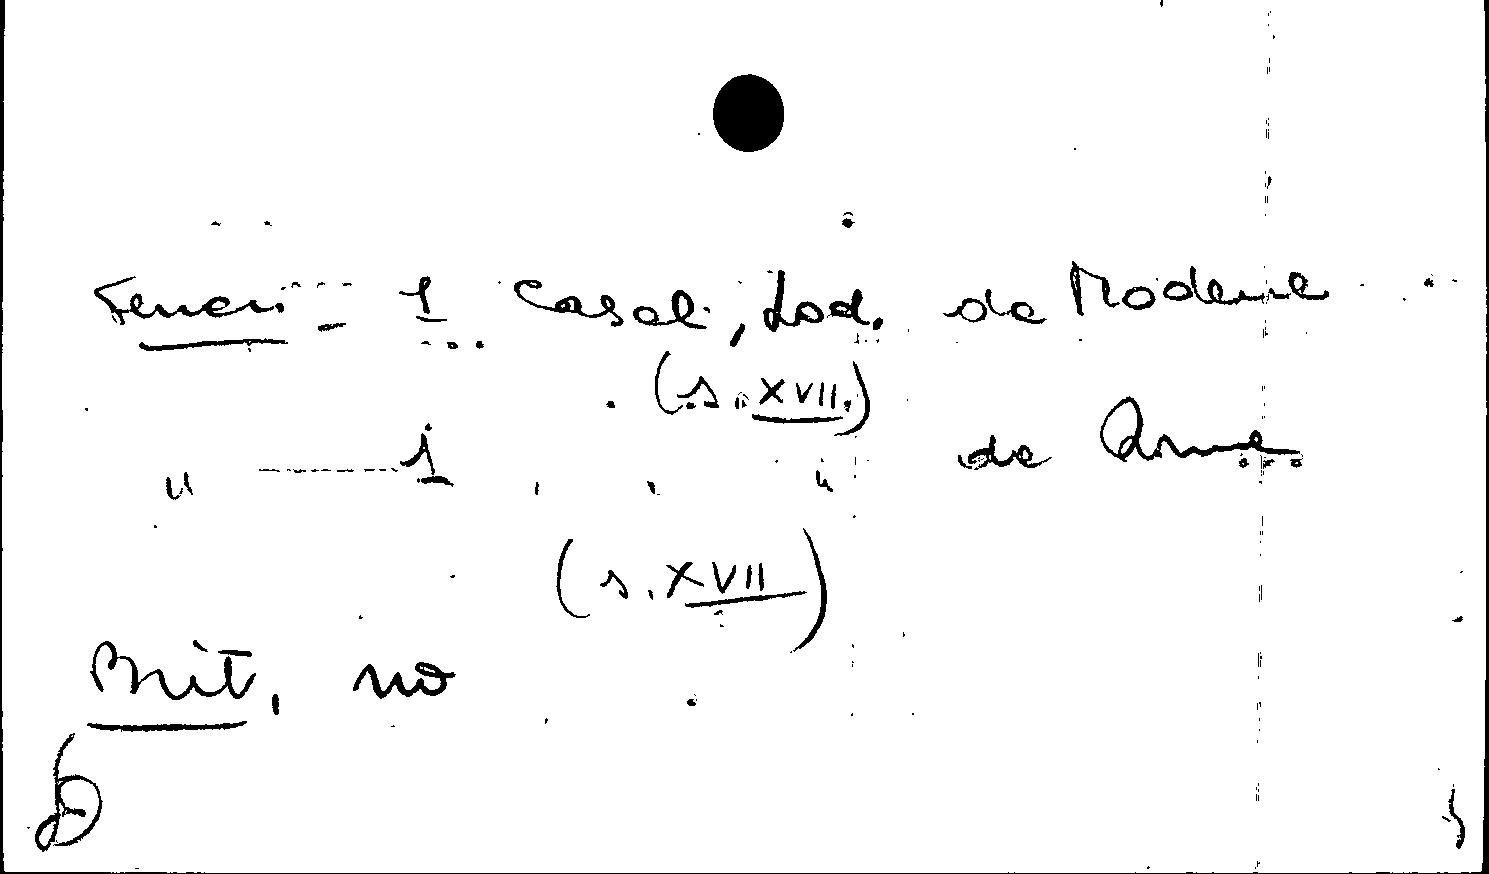 Feneri - 1 Casali, Lod. da Modena
(s. XVII.)
" 1 " da Roma
(s. XVII)
Brit, no